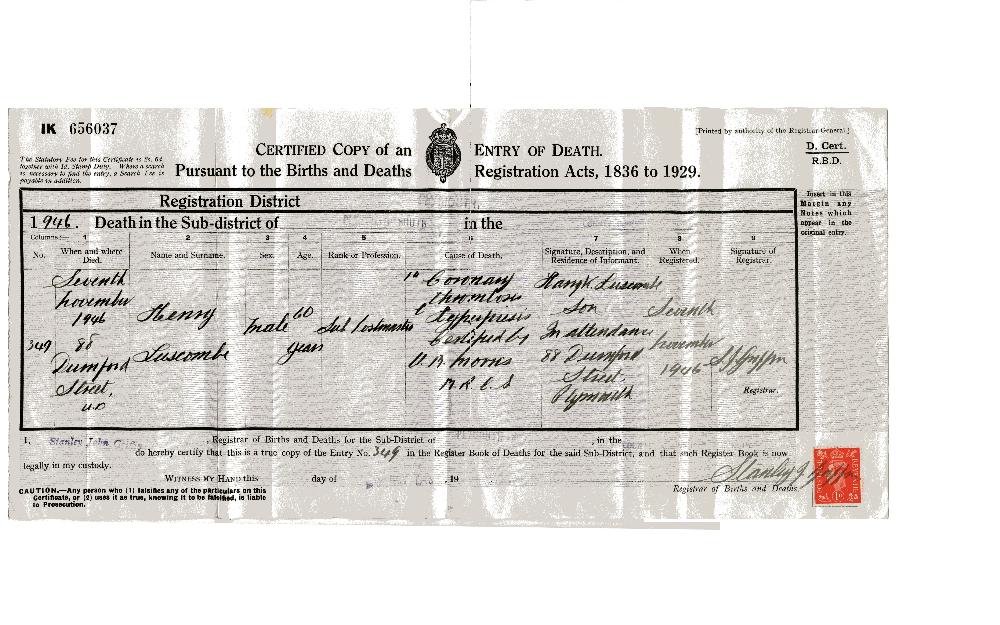 IK 656037
[Printed by authority of the Registrar-General.]
The Statutory Fee for this Certificate is 2s. 6d.
together with 1d. Stamp Duty. Where a search
is necessary to find the entry, a Search Fee is
payable in addition.
CERTIFIED COPY of an ENTRY OF DEATH.
Pursuant to the Births and Deaths Registration Acts, 1836 to 1929.
D. Cert.
R.B.D.
Registration District
1946. Death in the Sub-district of in the
Insert in this
Margin any
Notes which
appear in the
original entry.
Columns:— 1 2 3 4 5 6 7 8 9
No. When and where Died. Name and Surname. Sex. Age. Rank or Profession. Cause of Death. Signature, Description, and Residence of Informant. When Registered. Signature of Registrar.
349
Seventh
November
1946
88
Durnford
Street,
U.D
Henry
Luscombe
male
60
years
Sub Postmaster
Coronary
thrombosis
Certified by
M R C S
Luscombe
Son
In attendance
88 Durnford
Street,
Plymouth
Seventh
November
1946
Registrar.
I, Stanley John , Registrar of Births and Deaths for the Sub-District of , in the
do hereby certify that this is a true copy of the Entry No. 349 in the Register Book of Deaths for the said Sub-District, and that such Register Book is now
legally in my custody.
WITNESS MY HAND this day of , 19
Stanley J.
Registrar of Births and Deaths.
CAUTION.—Any person who (1) falsifies any of the particulars on this
Certificate, or (2) uses it as true, knowing it to be falsified, is liable
to Prosecution.